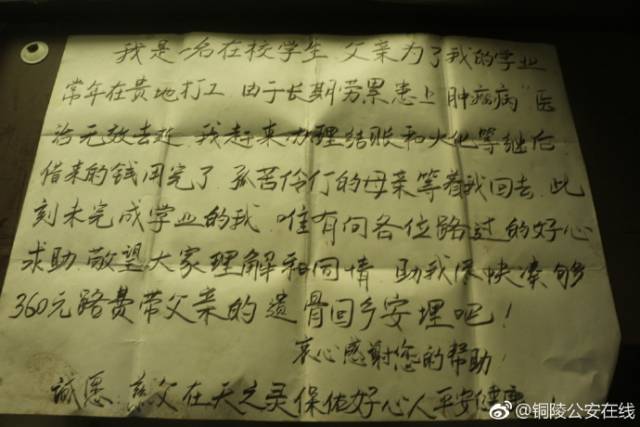 我是一名在校学生 父亲为了我的学业
常年在贵地打工 由于长期劳累患上"肿瘤病"医
治无效去逝 我赶来办理结账和火化等继后
借来的钱用完了 孤苦伶仃的母亲等着我回去 此
刻未完成学业的我 唯有向各位路过的好心
求助 敬望大家理解和同情 助我尽快凑够
360元路费带父亲的遗骨回乡安埋吧！
衷心感谢您的帮助！
诚愿 慈父在天之灵保佑好心人平安健康！
@铜陵公安在线